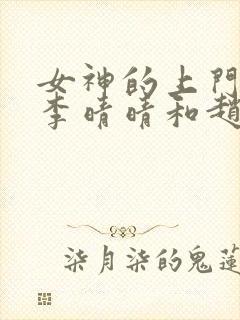 女神的上門
李晴晴和趙
柒月柒的鬼蓮